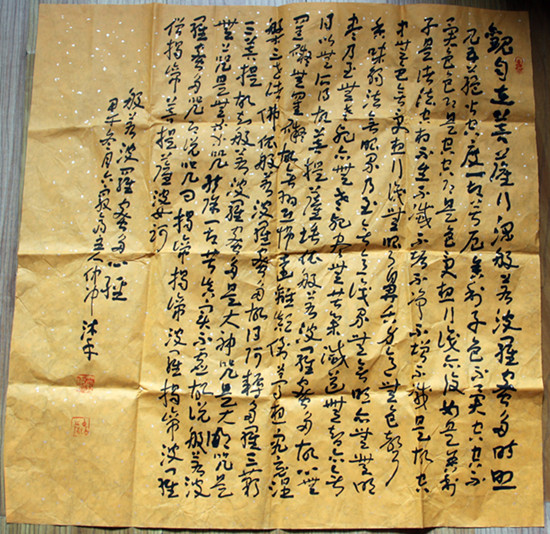 觀自在菩薩行深般若波羅蜜多時照
見五蘊皆空度一切苦厄舍利子色不異空空不
異色色即是空空即是色受想行識亦復如是舍利
子是諸法空相不生不滅不垢不淨不增不減是故空
中無色無受想行識無眼耳鼻舌身意無色聲
香味觸法無眼界乃至無意識界無無明亦無無明
盡乃至無老死亦無老死盡無苦集滅道無智亦無
得以無所得故菩提薩埵依般若波羅蜜多故心無
罣礙無罣礙故無有恐怖遠離顛倒夢想究竟涅
槃三世諸佛依般若波羅蜜多故得阿耨多羅三藐
三菩提故知般若波羅蜜多是大神咒是大明咒是
無上咒是無等等咒能除一切苦真實不虛故說般若波
羅蜜多咒即說咒曰揭諦揭諦波羅揭諦波羅
僧揭諦菩提薩婆訶
般若波羅蜜多心經
甲午冬月 沐手